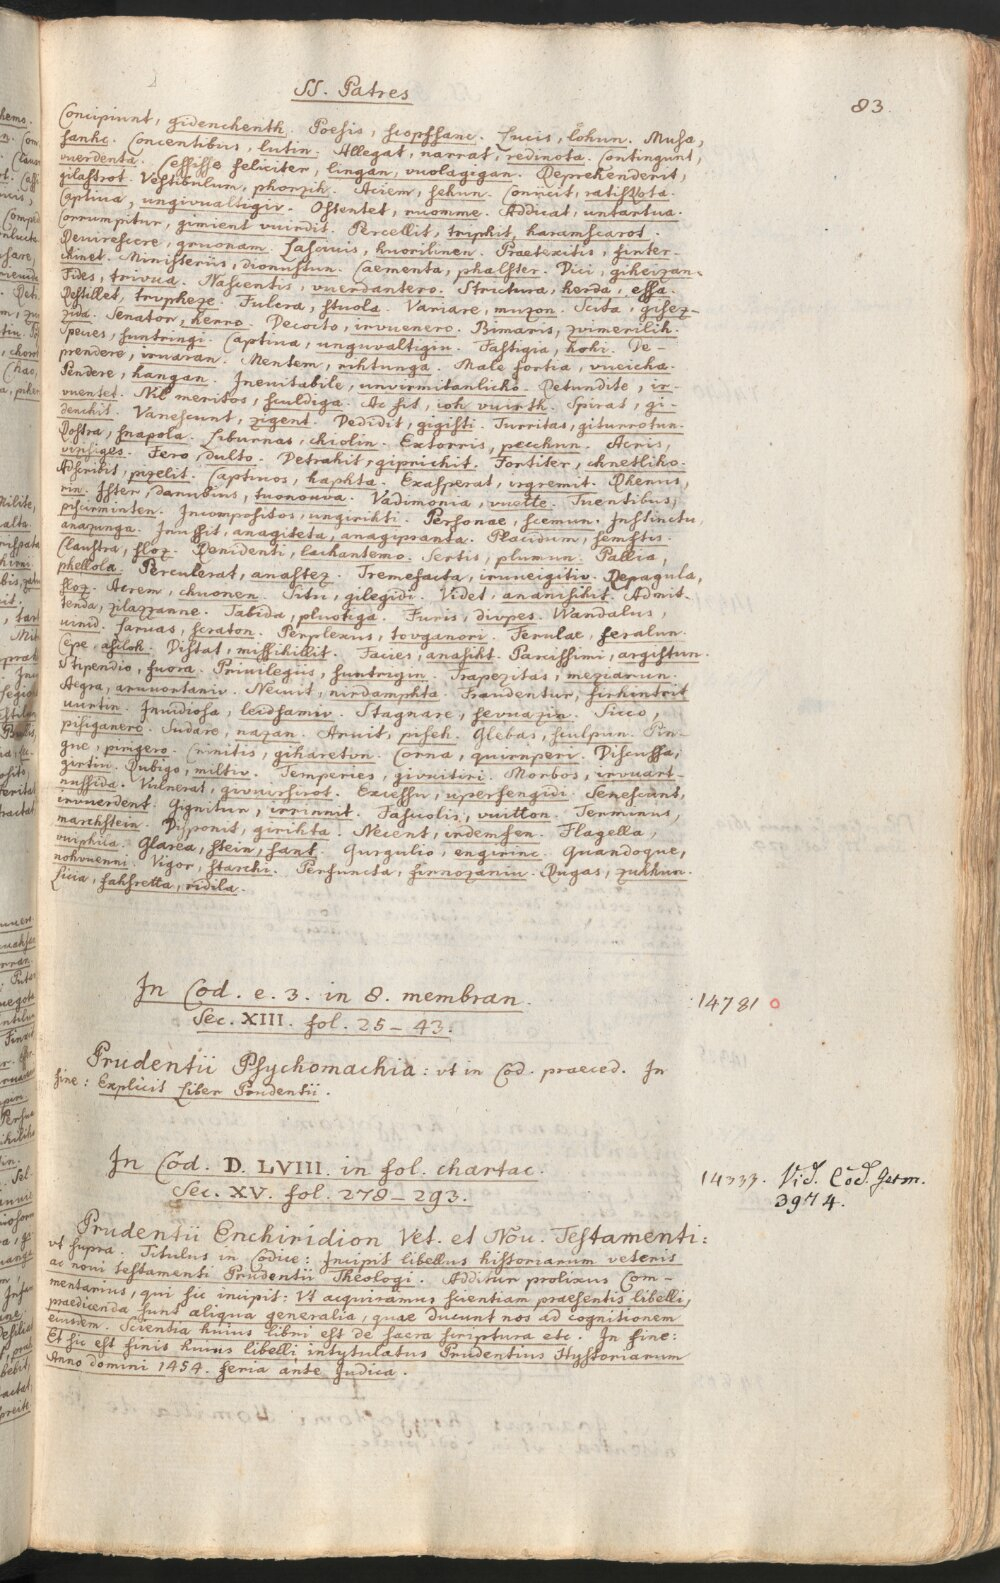 SS. Patres
83.
Concipiunt, gidenchenth. Poesis, scopfsanc. Lucis, lohun. Musa,
sanhc. Concentibus, lutin. Allegat, narrat, redinota. Contingunt,
vuerdenta. Cessisse feliciter, lingan, vuolagigan. Deprehenderit,
gilastrot. Vestibulum, phorzih. Aciem, sehun. Convicit, ratistota.
Captiua, ungiuualtigiv. Ostentet, ruomme. Adducat, untartua.
Corrumpitur, gimient vuirdit. Percellit, triphit, haramscarot.
Deuirescere, gruonam. Lasciuis, huorilinen. Praetexitis, hinter-
chinet. Ministeriis, dionustun. Caementa, phalster. Dici, giheizan.
Fides, trivua. Nascentis, vuerdantero. Strictura, herda, essa.
Destillet, tropheze. Fulcra, stuola. Variare, muzon. Scita, gisez-
zida. Senator, herro. Decocto, irvuenero. Bimaris, zvimerilih.
Species, suntringi. Captiua, unguvaltigiu. Fastigia, hohi. De-
prendere, irvaran. Mentem, rihtunga. Male fortia, vuiciha.
Pendere, hangan. Ineuitabile, unvirmitanlicho. Retundite, ir-
vuentet. Nil meritos, sculdiga. Ac sit, ioh vuirth. Spirat, gi-
denchit. Vanescunt, zigent. Dedidit, gigisti. Turritas, giturrotun.
Rostra, snapola. Liburnas, chiolin. Extorris, recchun. Acris,
virsiges. Fero, dulto. Detrahit, giprichit. Fortiter, chnetliho.
Adscribit, pizelit. Captiuos, hapkta. Exasperat, irgremit. Rhenus,
rin. Ister, danubius, tuonouva. Vadimonia, vuette. Tuentibus,
piscirminten. Incompositos, ungirihti. Personae, scemun. Instinctu,
anazunga. Inussit, anagiteta, anagipranta. Placidum, semftis.
Claustra, sloz. Renidenti, lachantemo. Sertis, plumun. Pallia,
phellola. Perculerat, anastez. Tremefacta, iruueigitiv. Repagula,
sloz. Acrem, chuonen. Situ, gilegidi. Videt, ananisihit. Admit-
tenda, zilazzanne. Tabida, pluotiga. Furis, diupes. Wandalus,
uinid. Laruas, scraton. Perplexus, tovganori. Ferulae, seralun.
Cepe, asiloh. Distat, missihillit. Facies, anasiht. Parcissimi, argistun.
Stipendio, fuora. Privilegiis, suntrigin. Trapezitas, mezzarun.
Aegra, aruuortaniv. Neuuit, nirdamphta. Fraudentur, firhintrit
uurtin. Inuidiosa, leidsamiv. Stagnare, sevuazin. Sicco,
pisiganero. Sudare, nazan. Aruit, piseh. Glebas, sculpun. Pin-
gue, pingero. Crinitis, giharetun. Corna, quirnperi. Discussa,
girtin. Rubigo, miltiv. Temperies, givuitiri. Morbos, irvuart-
nussida. Vulnerat, givuirsirot. Excessu, upersengidi. Senescant,
irvuerdent. Gignitur, irrinnit. Fasciolis, vuitton. Terminus,
marchstein. Disponit, girihta. Necent, irdemfen. Flagella,
vuiphila. Glarea, stein, sant. Gurgulio, engirinc. Quandoque,
nohvuenni. Vigor, starchi. Perfuncta, firnozaniu. Rugas, zukhun.
Licia, fahsretta, ridila.
In Cod. e. 3. in 8. membran.
Sec. XIII. fol. 25 – 43.
14781
Prudentii Psychomachia: vt in Cod. praeced. In
fine: Explicit Liber Prudentii.
In Cod. D. LVIII. in fol. chartac.
Sec. XV. fol. 278 – 293.
14733. Vid. Cod. Germ.
3974.
Prudentii Enchiridion Vet. et Nou. Testamenti:
vt supra. Titulus in Codice: Incipit libellus historiarum veteris
ac novi testamenti Prudentii Theologi. Additur prolixus Com-
mentarius, qui sic incipit: Vt acquiramus scientiam praesentis libelli,
praedicenda sunt aliqua generalia, quae ducunt nos ad cognitionem
eiusdem. Scientia huius libri est de sacra scriptura etc. In fine:
Et sic est finis huius libelli intytulatus Prudentius Hystoriarum
Anno domini 1454. feria ante Judica.